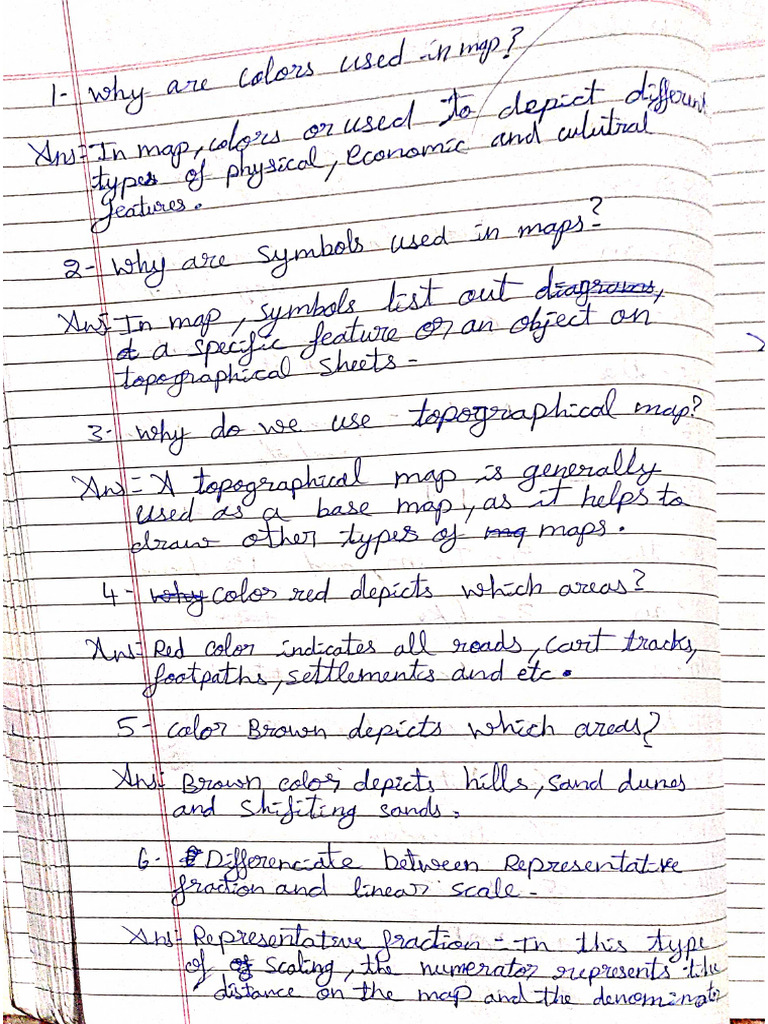 1- why are colors used in map?
Ans:- In map, colors or used to depict different
types of physical, economic and culutral
features.
2- why are symbols used in maps?
Ans:- In map, symbols list out diagrams,
a specific feature or an object on
topographical sheets-
3- why do we use topographical map?
Ans:- A topographical map is generally
used as a base map, as it helps to
draw other types of maps.
4- why color red depicts which areas?
Ans:- Red color indicates all roads, cart tracks,
footpaths, settlements and etc.
5- color Brown depicts which areas?
Ans:- Brown color depicts hills, sand dunes
and shifiting sands.
6- Differenciate between Representative
fraction and linear scale-
Ans:- Representative fraction - In this type
of scaling, the numerator represents the
distance on the map and the denominator